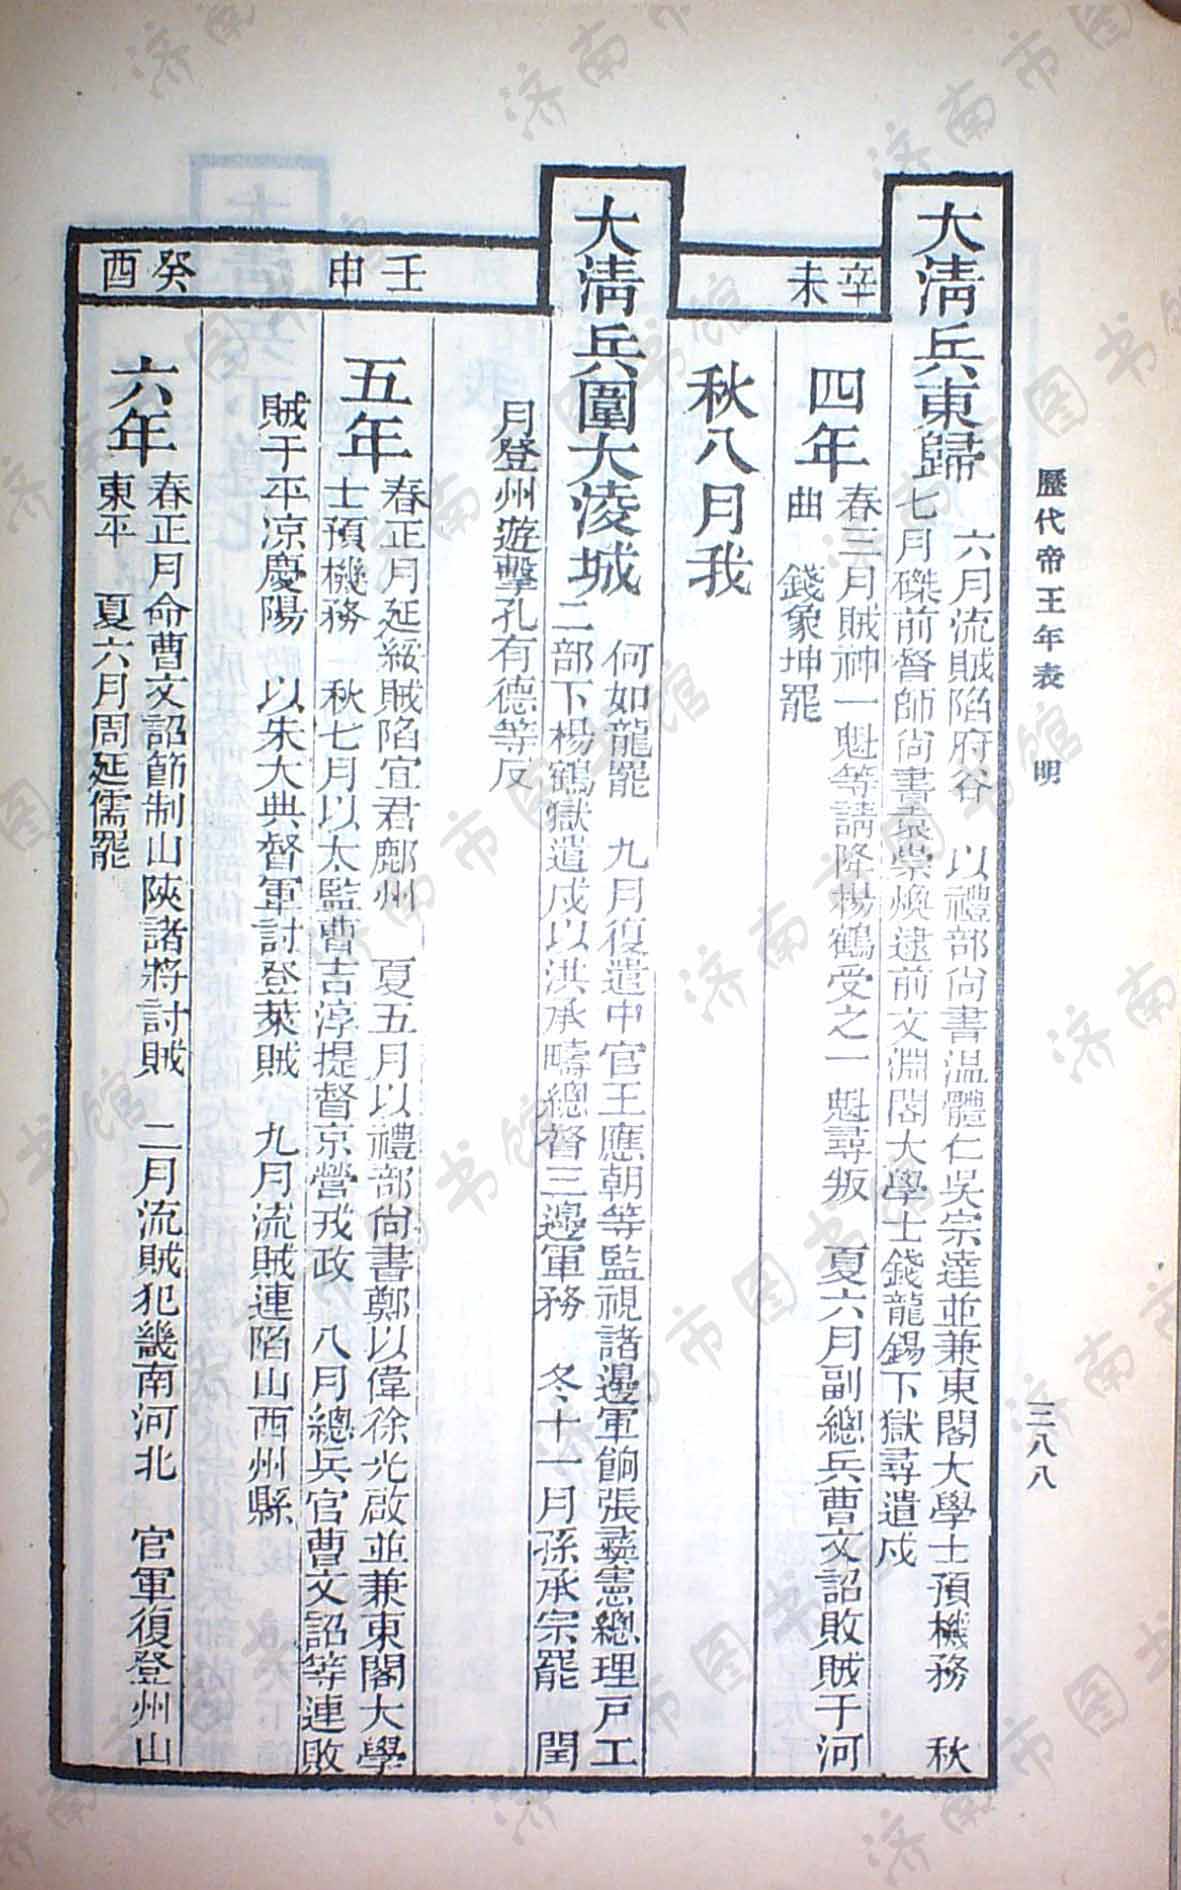 歷代帝王年表 明 三八八
大淸兵東歸
六月流賊陷府谷 以禮部尙書溫體仁吳宗達並兼東閣大學士預機務 秋
七月磔前督師尙書袁崇煥逮前文淵閣大學士錢龍錫下獄尋遣戍
辛未
四年
春三月賊神一魁等請降楊鶴受之一魁尋叛 夏六月副總兵曹文詔敗賊于河
曲 錢象坤罷
秋八月我
大淸兵圍大淩城
何如龍罷 九月復遣中官王應朝等監視諸邊軍餉張彝憲總理戶工
二部下楊鶴獄遣戍以洪承疇總督三邊軍務 冬十一月孫承宗罷 閏
月登州遊擊孔有德等反
壬申
五年
春正月延綏賊陷宜君鄜州 夏五月以禮部尙書鄭以偉徐光啟並兼東閣大學
士預機務 秋七月以太監曹吉淳提督京營戎政 八月總兵官曹文詔等連敗
賊于平涼慶陽 以朱大典督軍討登萊賊 九月流賊連陷山西州縣
癸酉
六年
春正月命曹文詔節制山陝諸將討賊 二月流賊犯畿南河北 官軍復登州山
東平 夏六月周延儒罷
济南市图书馆